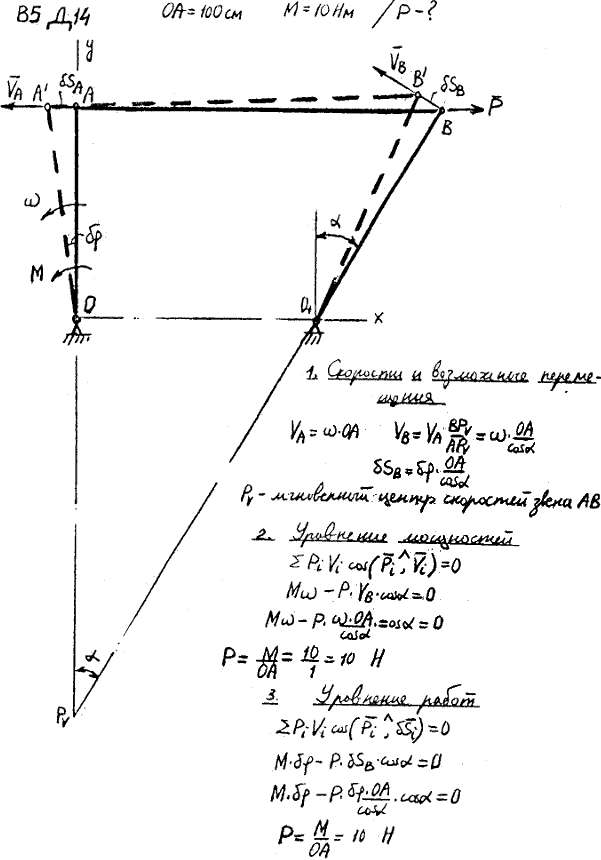 В5 Д14 OA=100см M=10Нм / P-?
y
V̄_A A' δS_A A
V̄_B B' δS_B
B P̄
ω
δφ
M
α
O O₁ x
1. Скорости и возможные переме-
щения
V_A = ω·OA V_B = V_A BP_V/AP_V = ω·OA/cosα
δS_B = δφ·OA/cosα
P_V - мгновенный центр скоростей звена AB
2. Уравнение мощностей
ΣP_i V_i cos(P̄_i^V̄_i)=0
Mω - P·V_B·cosα=0
Mω - P·ω·OA/cosα·cosα = 0
P = M/OA = 10/1 = 10 Н
α
P_V
3. Уравнение работ
ΣP_i V_i cos(P̄_i^δS̄_i)=0
M·δφ - P·δS_B·cosα=0
M·δφ - P·δφ·OA/cosα·cosα=0
P = M/OA = 10 Н